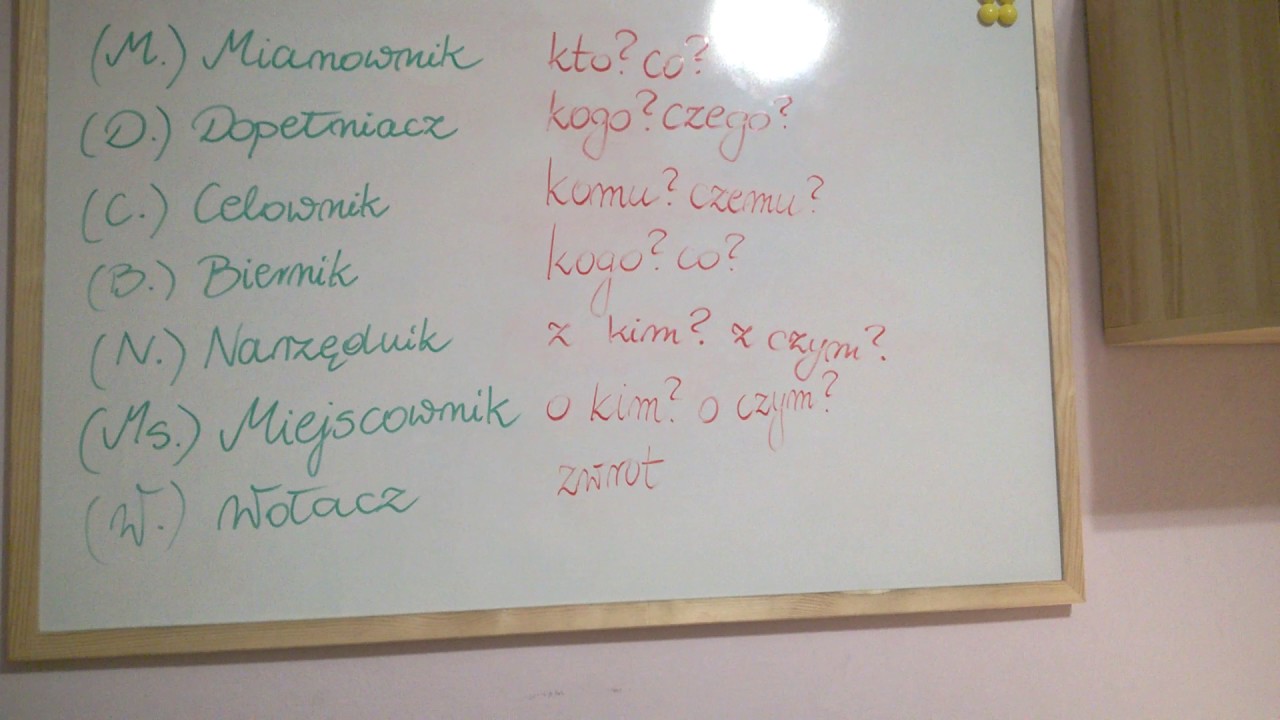 (M.) Mianownik kto? co?
(D.) Dopełniacz kogo? czego?
(C.) Celownik komu? czemu?
(B.) Biernik kogo? co?
(N.) Narzędnik z kim? z czym?
(Ms.) Miejscownik o kim? o czym?
(W.) Wołacz zwrot